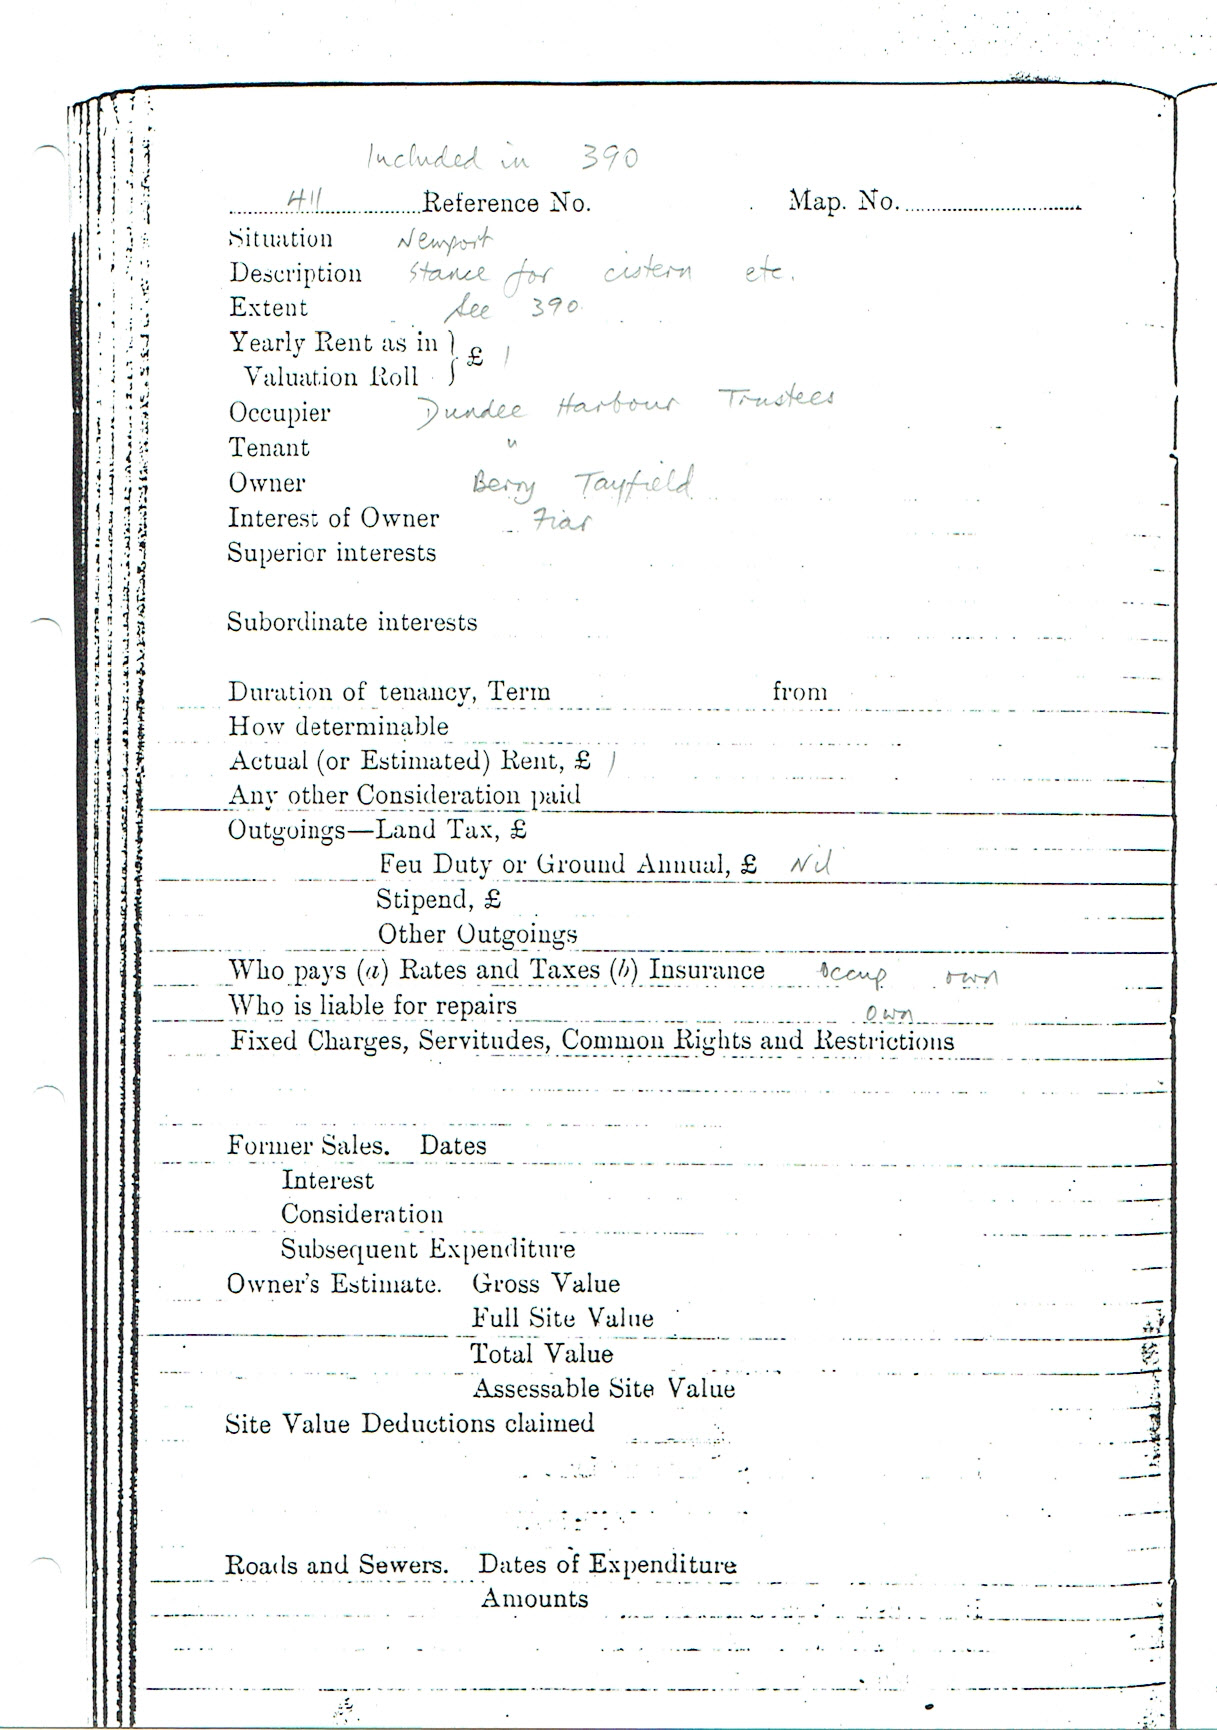 Included in 390
411 Reference No. Map. No.
Situation Newport
Description Stance for cistern etc.
Extent See 390
Yearly Rent as in
Valuation Roll } £ 1
Occupier Dundee Harbour Trustees
Tenant "
Owner Berry Tayfield
Interest of Owner Fiar
Superior interests
Subordinate interests
Duration of tenancy, Term from
How determinable
Actual (or Estimated) Rent, £ 1
Any other Consideration paid
Outgoings—Land Tax, £
Feu Duty or Ground Annual, £ Nil
Stipend, £
Other Outgoings
Who pays (a) Rates and Taxes (b) Insurance occup own
Who is liable for repairs own
Fixed Charges, Servitudes, Common Rights and Restrictions
Former Sales. Dates
Interest
Consideration
Subsequent Expenditure
Owner's Estimate. Gross Value
Full Site Value
Total Value
Assessable Site Value
Site Value Deductions claimed
Roads and Sewers. Dates of Expenditure
Amounts